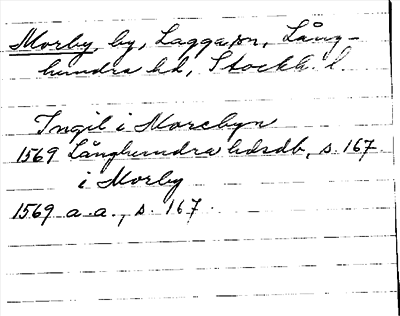 Morby, by, Lagga sn, Lång-
hundra hd, Stockh. l.
Ingil i Morebyn
1569 Långhundra hdsdb, s. 167
i Morby
1569 a.a., s. 167.